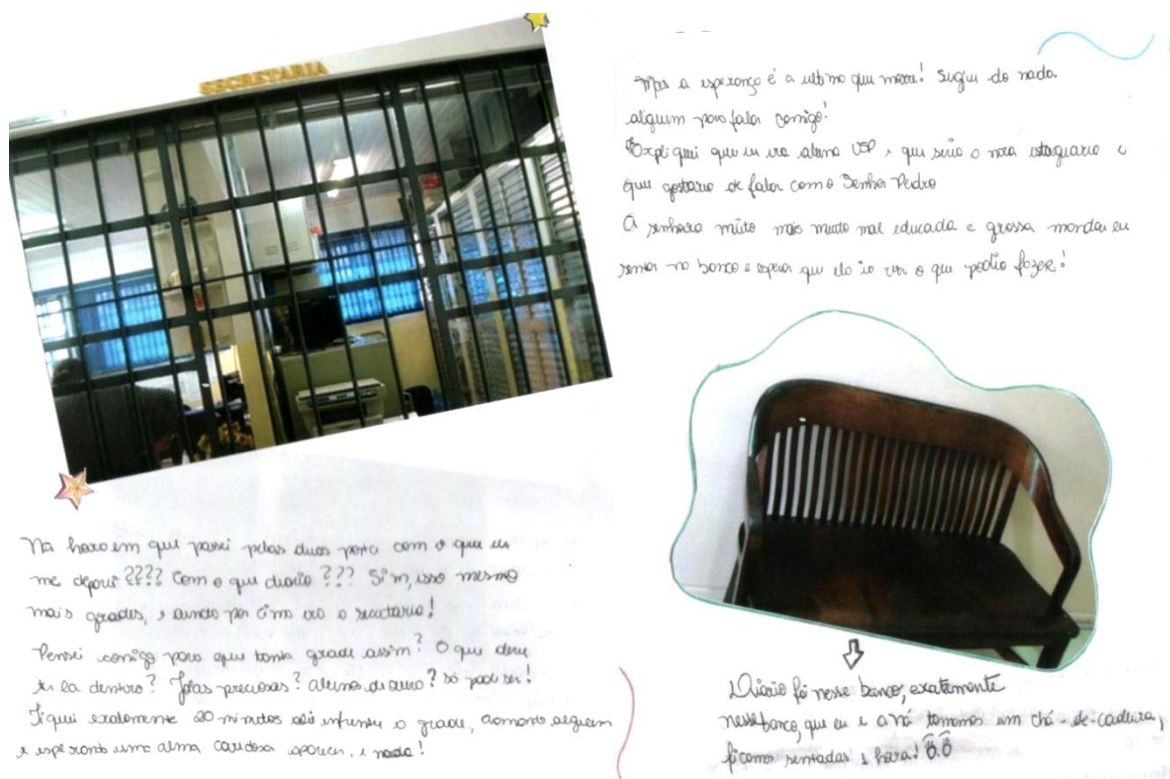 SECRETARIA
Na hora em que passei pelas duas porta com o que eu
me deparei ???? Com o que diario ??? Sim, isso mesmo
mais grades, e ainda por cima era a secretaria!
Pensei comigo para que tanta grade assim? O que deve
ter la dentro? Jóias preciosas? Alunos de ouro? Só pode ser!
Fiquei exatamente 20 minutos ali infrente a grade, chamando alguem
e esperando uma alma caridosa aparecer, e nada!
Mas a esperança é a ultima que morre! Sugiu do nada
alguem para falar comigo!
Expliquei que eu era aluna USP e que seria a nova estagiaria e
que gostaria de falar com o Senhor Pedro
A senhora muito mais muito mal educada e grossa mandou eu
sentar no banco e esperar que ela ia ver o que podia fazer!
Diario foi nesse banco, exatamente
nesse banco, que eu e a tomamos um chá-de-cadeira,
ficamos sentadas hora! Õ.Õ